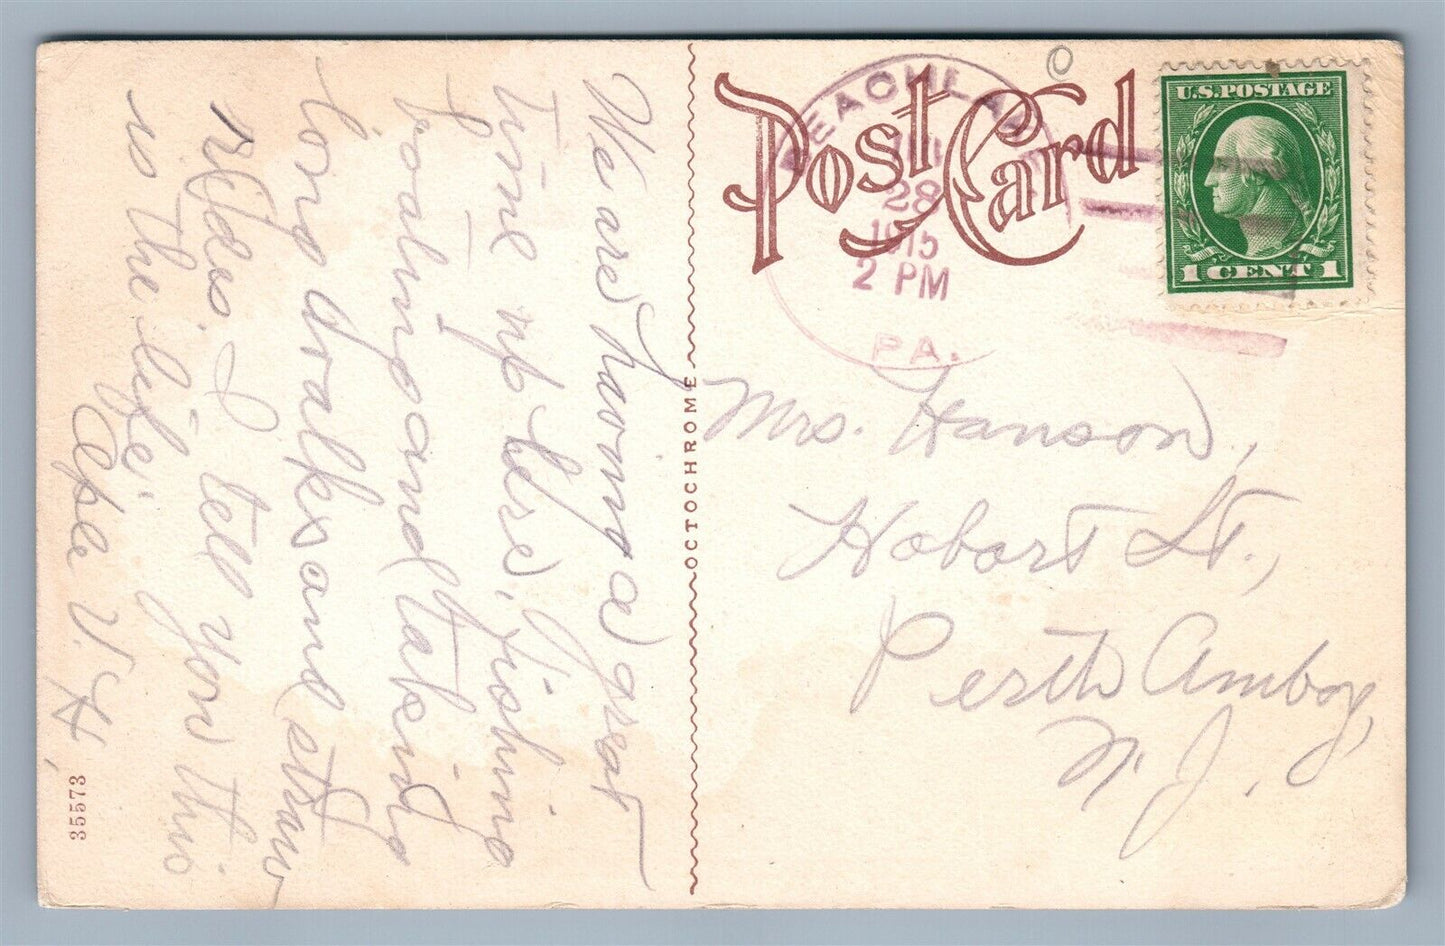 We are having a great
time up here, fishing
boating and taking
long walks and straw
rides. I tell you this
is the life.
V. H.
35573
OCTOCHROME
Post Card
28
1915
2 PM
PA.
U.S. POSTAGE
1 CENT 1
Mrs. Hanson,
Hobart St.,
Perth Amboy,
N. J.